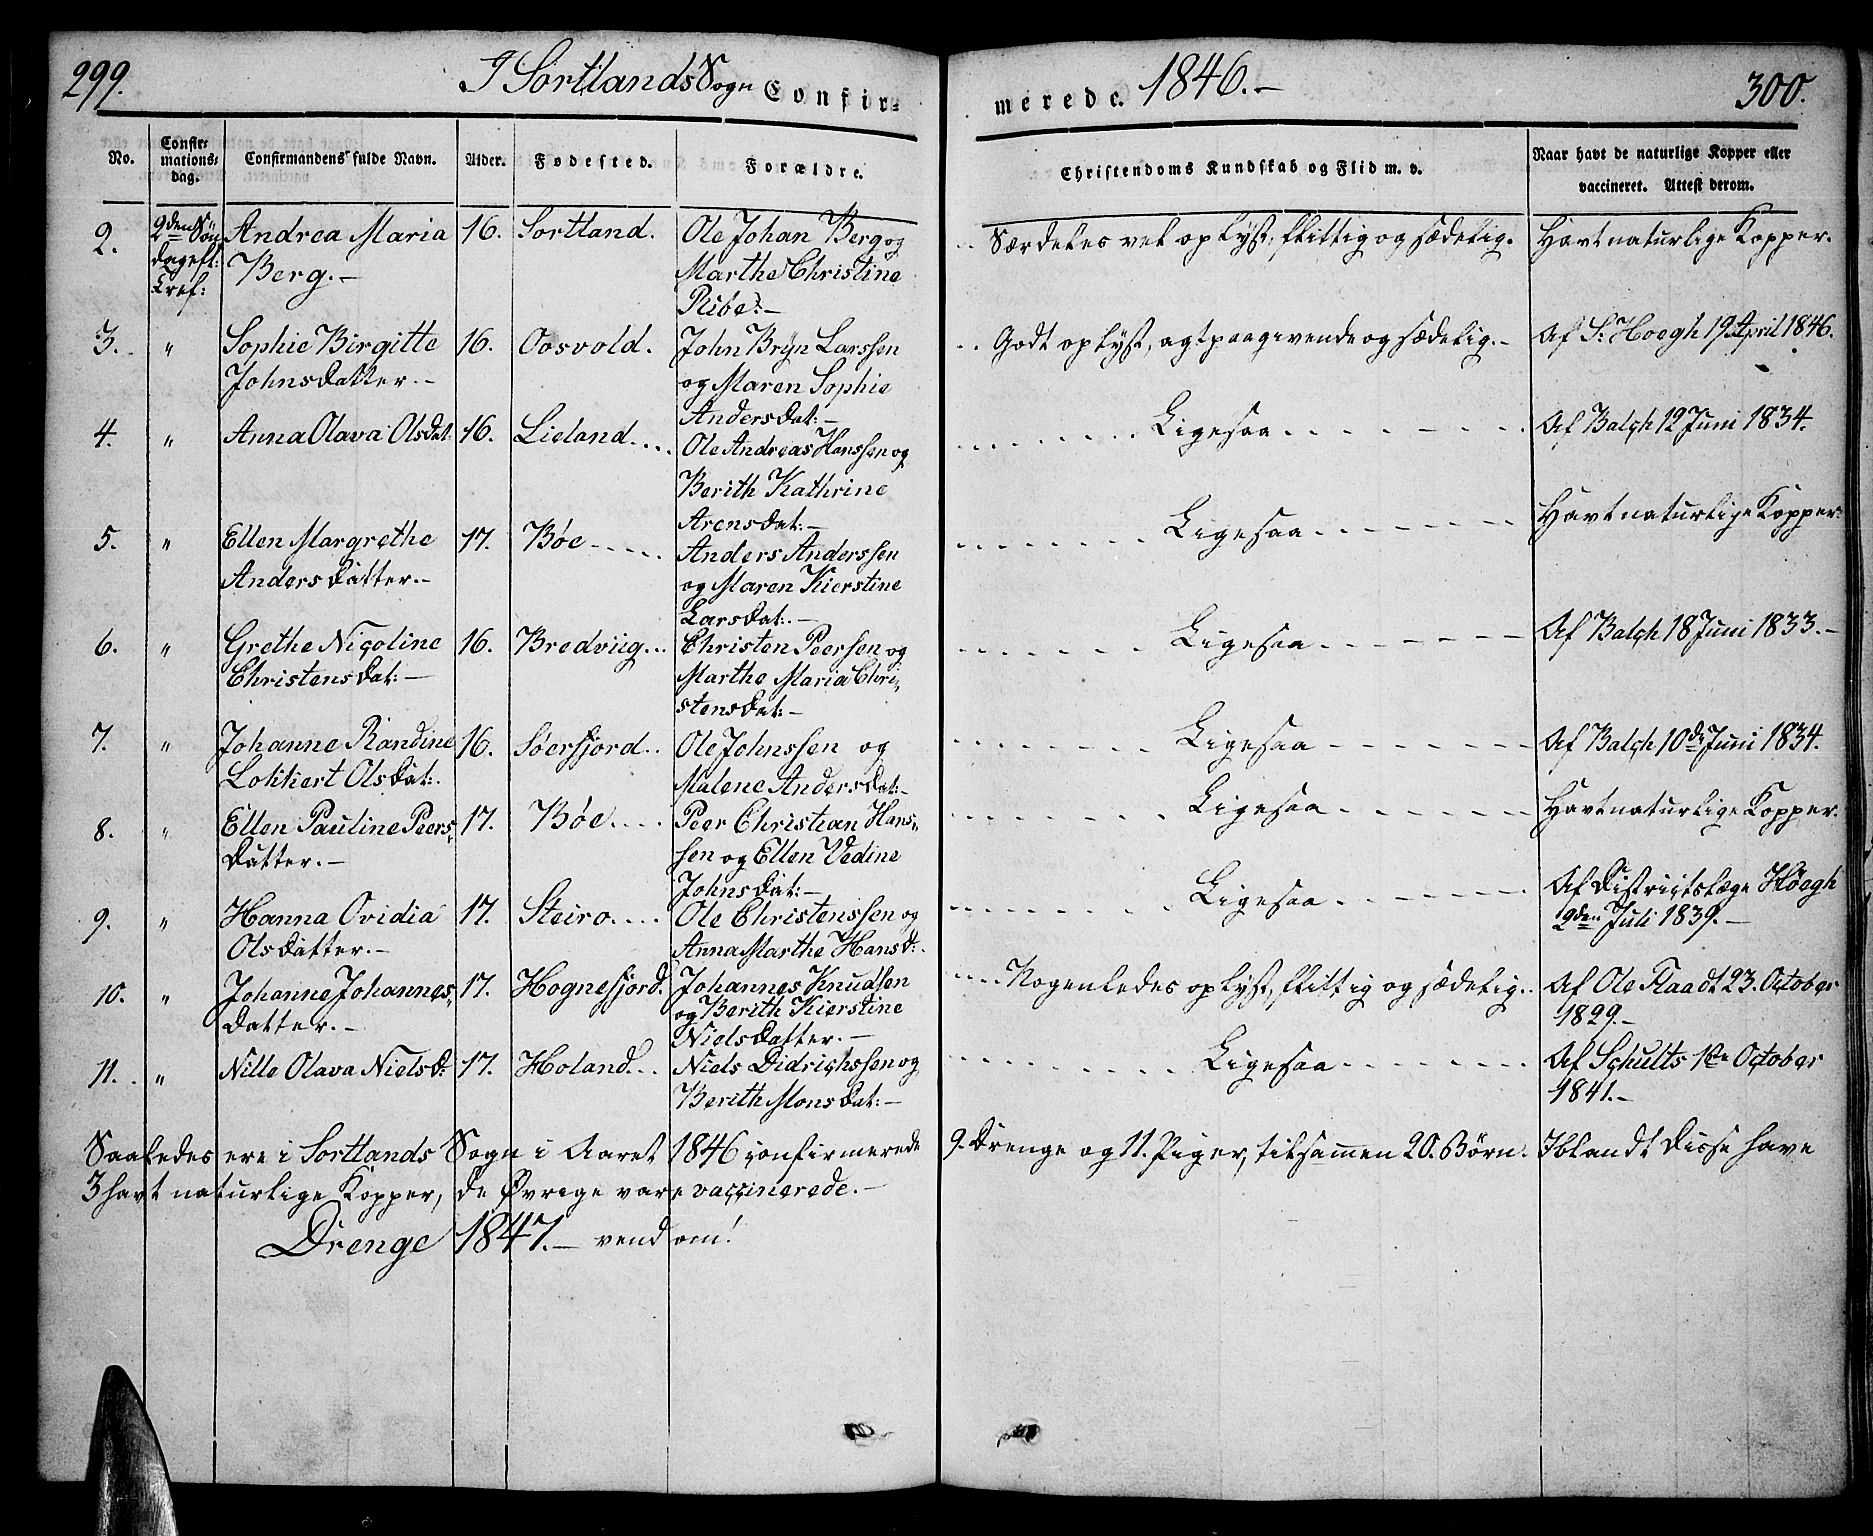 299.
I Sortlands Sogn Confir-
merede. 1846.-
300.
No.
Confir-
mations-
dag.
Confirmandens fulde Navn.
Alder.
Fødested.
Forældre.
Christendoms Kundskab og Flid m. v.
Naar havt de naturlige Kopper eller
vaccineret. Attest derom.
2.
9den Søn
dag eft:
Tref:
Andrea Maria
Berg.-
16.
Sortland.
Ole Johan Berg og
Marthe Christine
Ribe:-
Særdeles vel oplyst, flittig og sædelig.
Havt naturlige Kopper.
3. "
Sophie Birgitte
Johnsdatter.-
16.
Oosvold.
John Bryn Larssen
og Maren Sophie
Andersdat:-
Godt oplyst, agtpaagivende og sædelig.-
Af S: Hoegh 19 April 1846.
4. "
Anna Olava Olsdat:
16.
Lieland...
Ole Andreas Hanssen og
Berith Kathrine
Arensdat:-
Ligesaa
Af Balch 12 Juni 1834.
5. "
Ellen Margrethe
Andersdatter.-
17.
Bøe
Anders Anderssen
og Maren Kierstine
Larsdat:.-
Ligesaa
Havt naturlige Kopper.
6. "
Grethe Nicoline
Christensdat:-
16.
Bredviig...
Christen Peersen og
Marthe Maria Chri-
stensdat:-
Ligesaa
Af Balch 18 Juni 1833.-
7. "
Johanne Randine
Lokkert Olsdat:.
16.
Søerfjord..
Ole Johnssen og
Malene Andersdat:-
Ligesaa
Af Balch 10de Juni 1834.
8. "
Ellen Pauline Peers-
datter.-
17.
Bøe....
Peer Christian Hans-
sen og Ellen Vedine
Johnsdat:-
Ligesaa
Havt naturlige Kopper.
9. "
Hanna Ovidia
Olsdatter.-
17.
Steiro....
Ole Christenssen og
Anna Marthe Hansd:.
Ligesaa
Af Districtslæge Høegh
9den Juli 1839.-
10. "
Johanne Johannes-
datter.-
17.
Hognefjord.
Johannes Knudsen
og Berith Kierstine
Nielsdatter.-
Nogenledes oplyst, flittig og sædelig..
Af Ole Flaadt 23. October
1829.-
11. "
Nille Olava Nielsd:
17.
Holand...
Niels Didrichssen og
Berith Monsdat:-
Ligesaa
Af Schults 1ste October
1841.-
Saaledes ere i Sortlands Sogn i Aaret 1846 confirmerede 9. Drenge og 11. Piger, tilsammen 20. Børn. Iblandt disse have
3 havt naturlige Kopper, de Øvrige vare vaccinerede.-
Drenge 1847.- vend om!